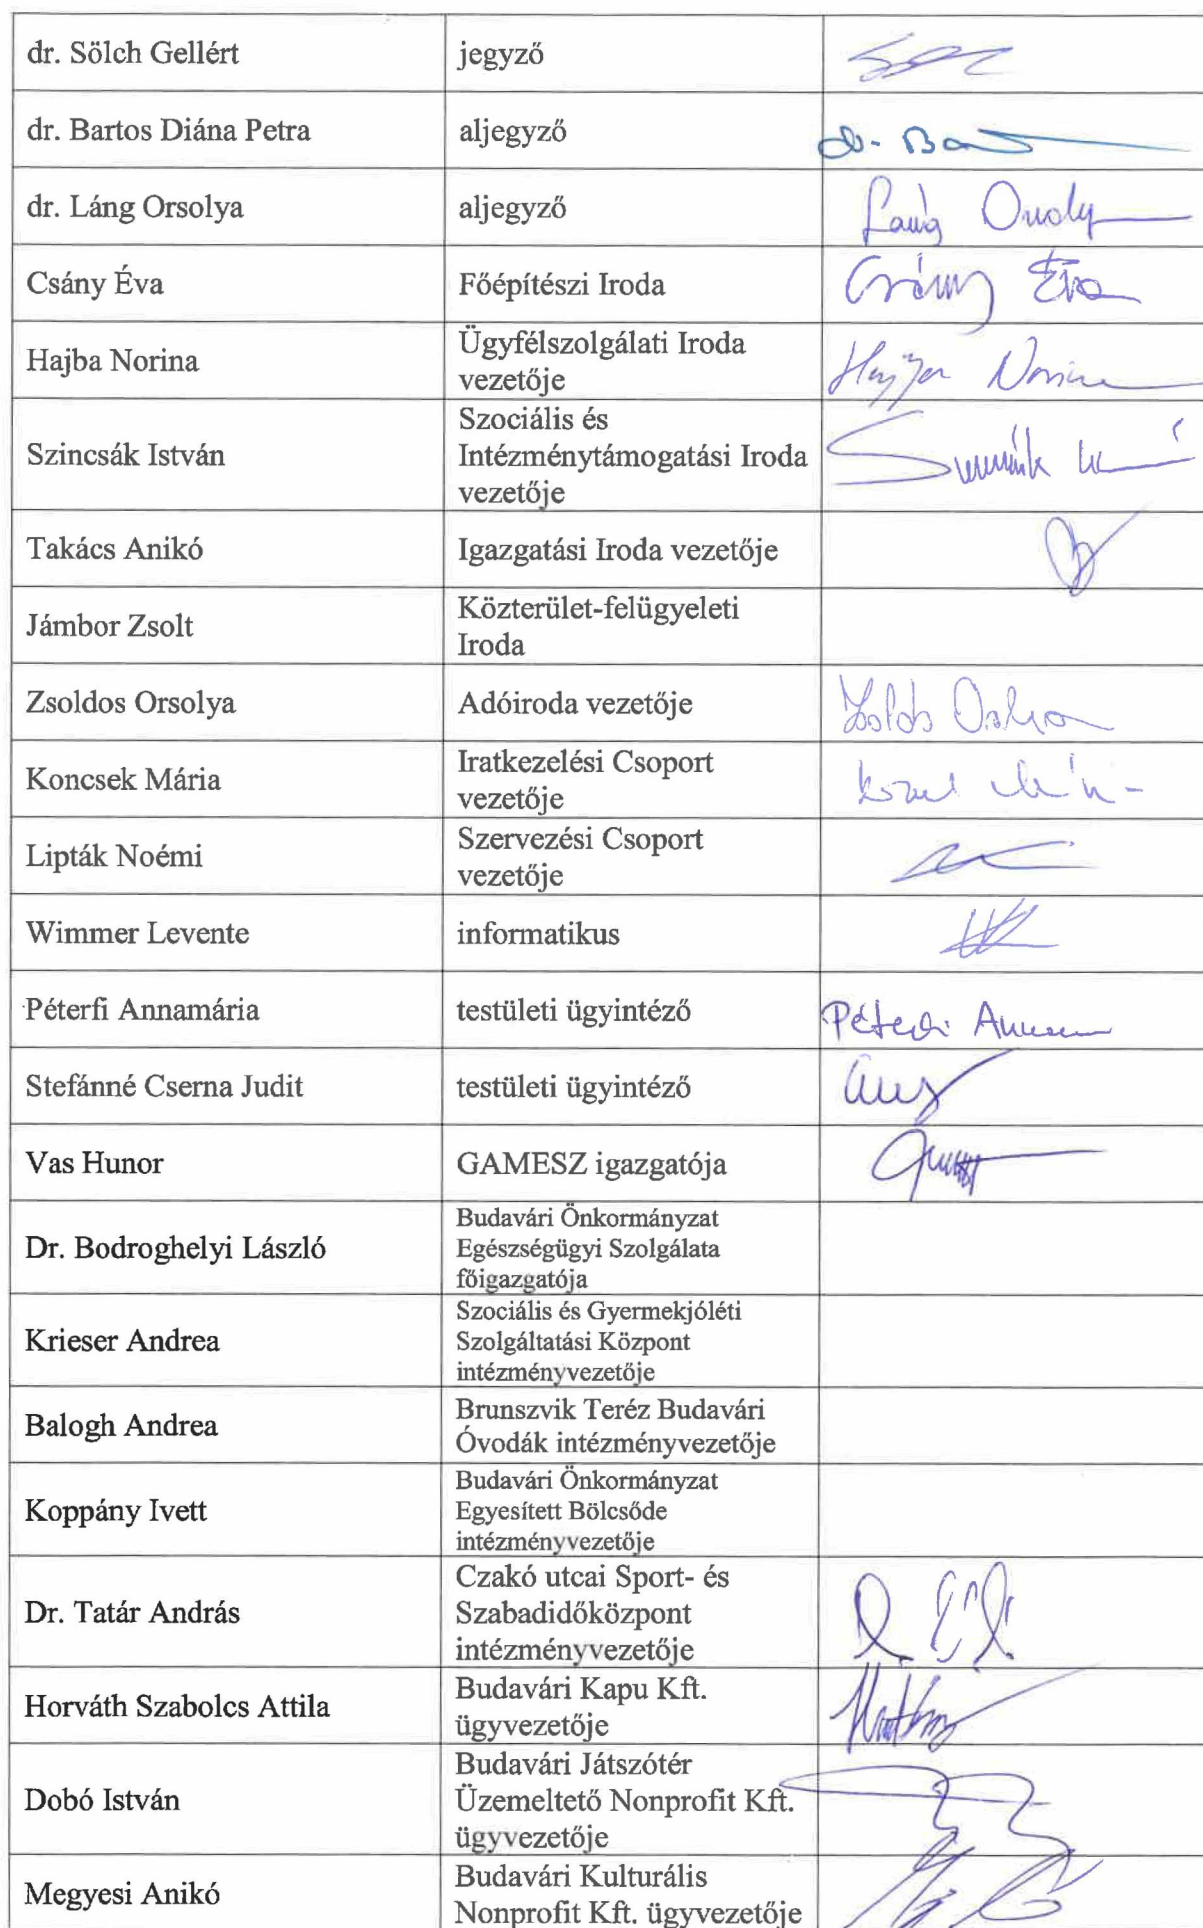 dr. Sölch Gellért
jegyző
dr. Bartos Diána Petra
aljegyző
dr. Láng Orsolya
aljegyző
Csány Éva
Főépítészi Iroda
Csány Éva
Hajba Norina
Ügyfélszolgálati Iroda
vezetője
Szincsák István
Szociális és
Intézménytámogatási Iroda
vezetője
Takács Anikó
Igazgatási Iroda vezetője
Jámbor Zsolt
Közterület-felügyeleti
Iroda
Zsoldos Orsolya
Adóiroda vezetője
Koncsek Mária
Iratkezelési Csoport
vezetője
Lipták Noémi
Szervezési Csoport
vezetője
Wimmer Levente
informatikus
Péterfi Annamária
testületi ügyintéző
Stefánné Cserna Judit
testületi ügyintéző
Vas Hunor
GAMESZ igazgatója
Dr. Bodroghelyi László
Budavári Önkormányzat
Egészségügyi Szolgálata
főigazgatója
Krieser Andrea
Szociális és Gyermekjóléti
Szolgáltatási Központ
intézményvezetője
Balogh Andrea
Brunszvik Teréz Budavári
Óvodák intézményvezetője
Koppány Ivett
Budavári Önkormányzat
Egyesített Bölcsőde
intézményvezetője
Dr. Tatár András
Czakó utcai Sport- és
Szabadidőközpont
intézményvezetője
Horváth Szabolcs Attila
Budavári Kapu Kft.
ügyvezetője
Dobó István
Budavári Játszótér
Üzemeltető Nonprofit Kft.
ügyvezetője
Megyesi Anikó
Budavári Kulturális
Nonprofit Kft. ügyvezetője